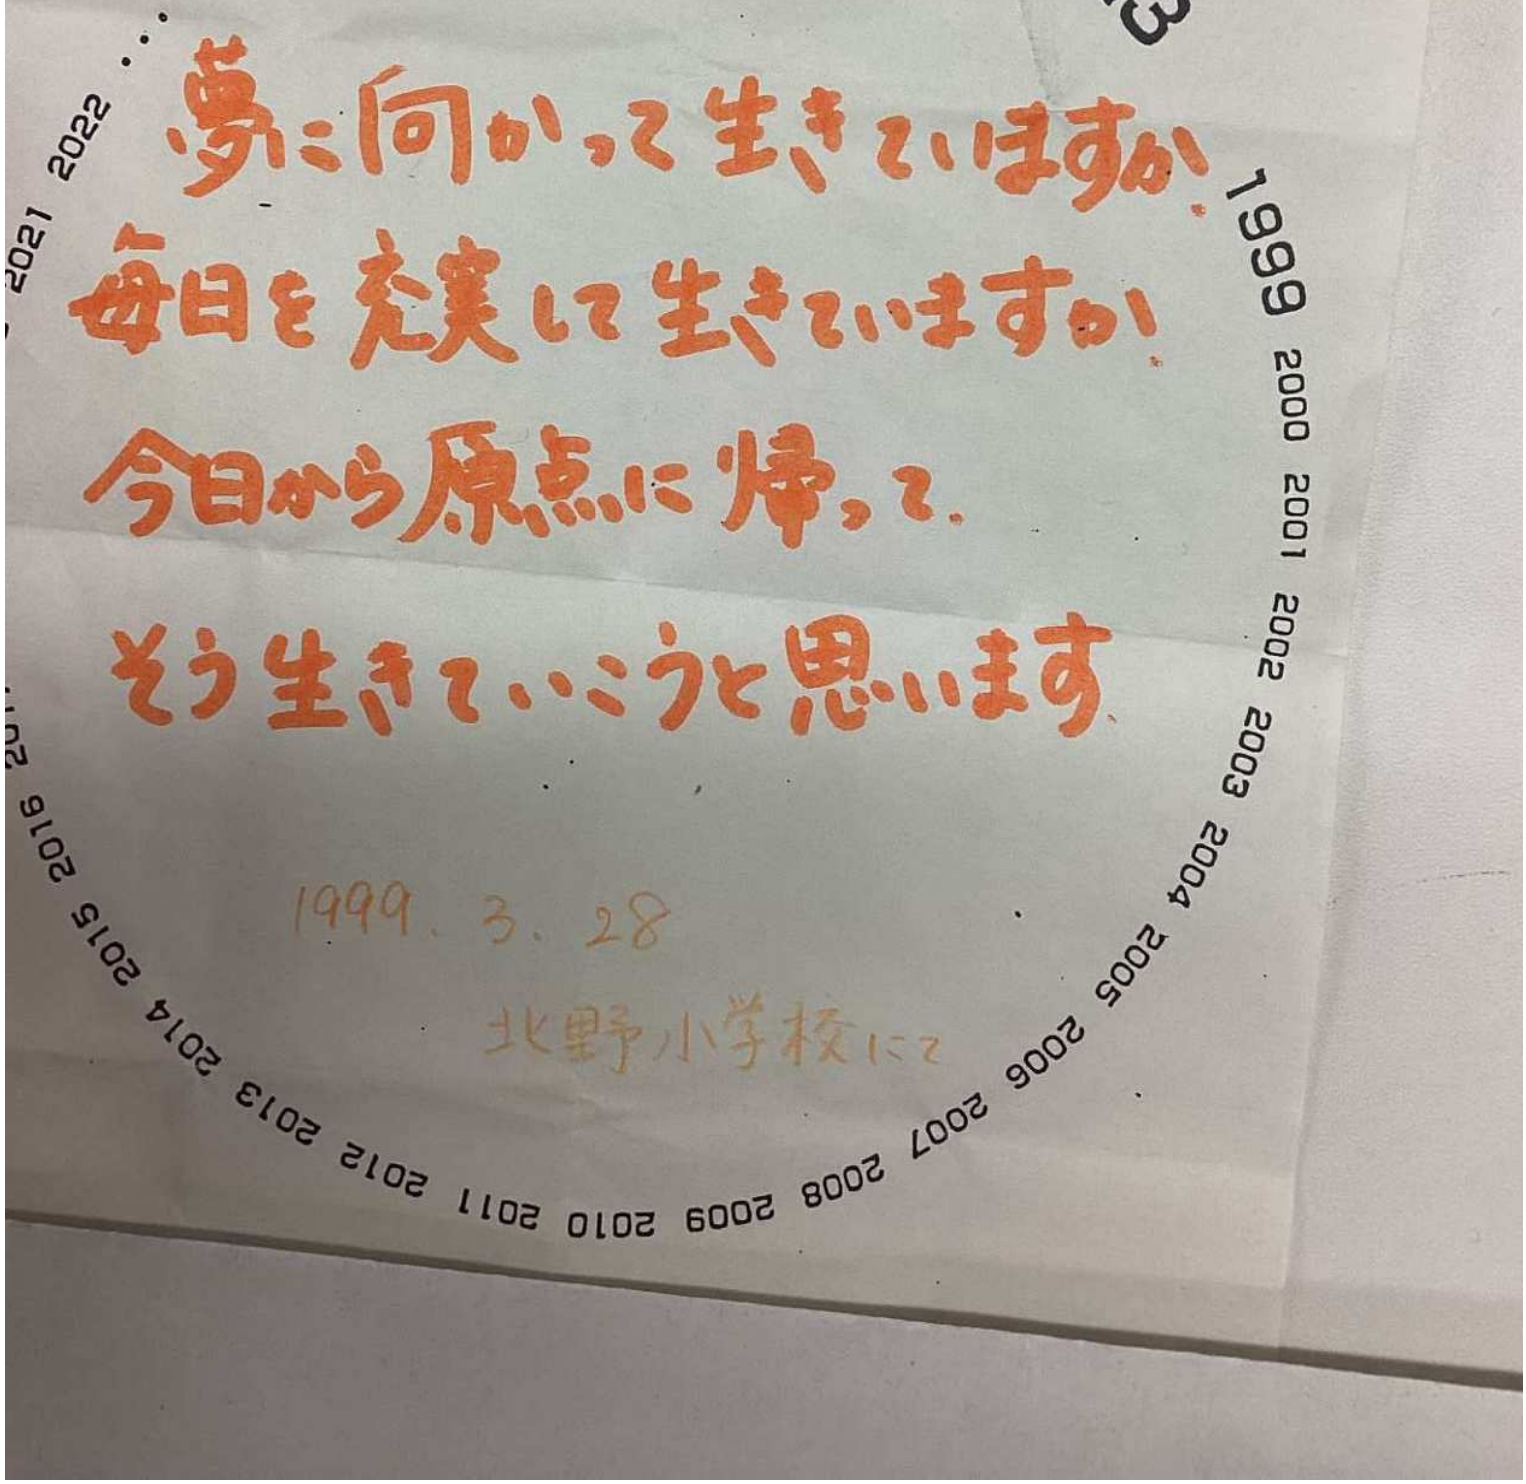 夢に向かって生きていますか.
毎日を充実して生きていますか.
今日から原点に帰って.
そう生きていこうと思います.
1999. 3. 28
北野小学校にて
1999 2000 2001 2002 2003 2004 2005 2006 2007 2008 2009 2010 2011 2012 2013 2014 2015 2016
2021 2022 ...